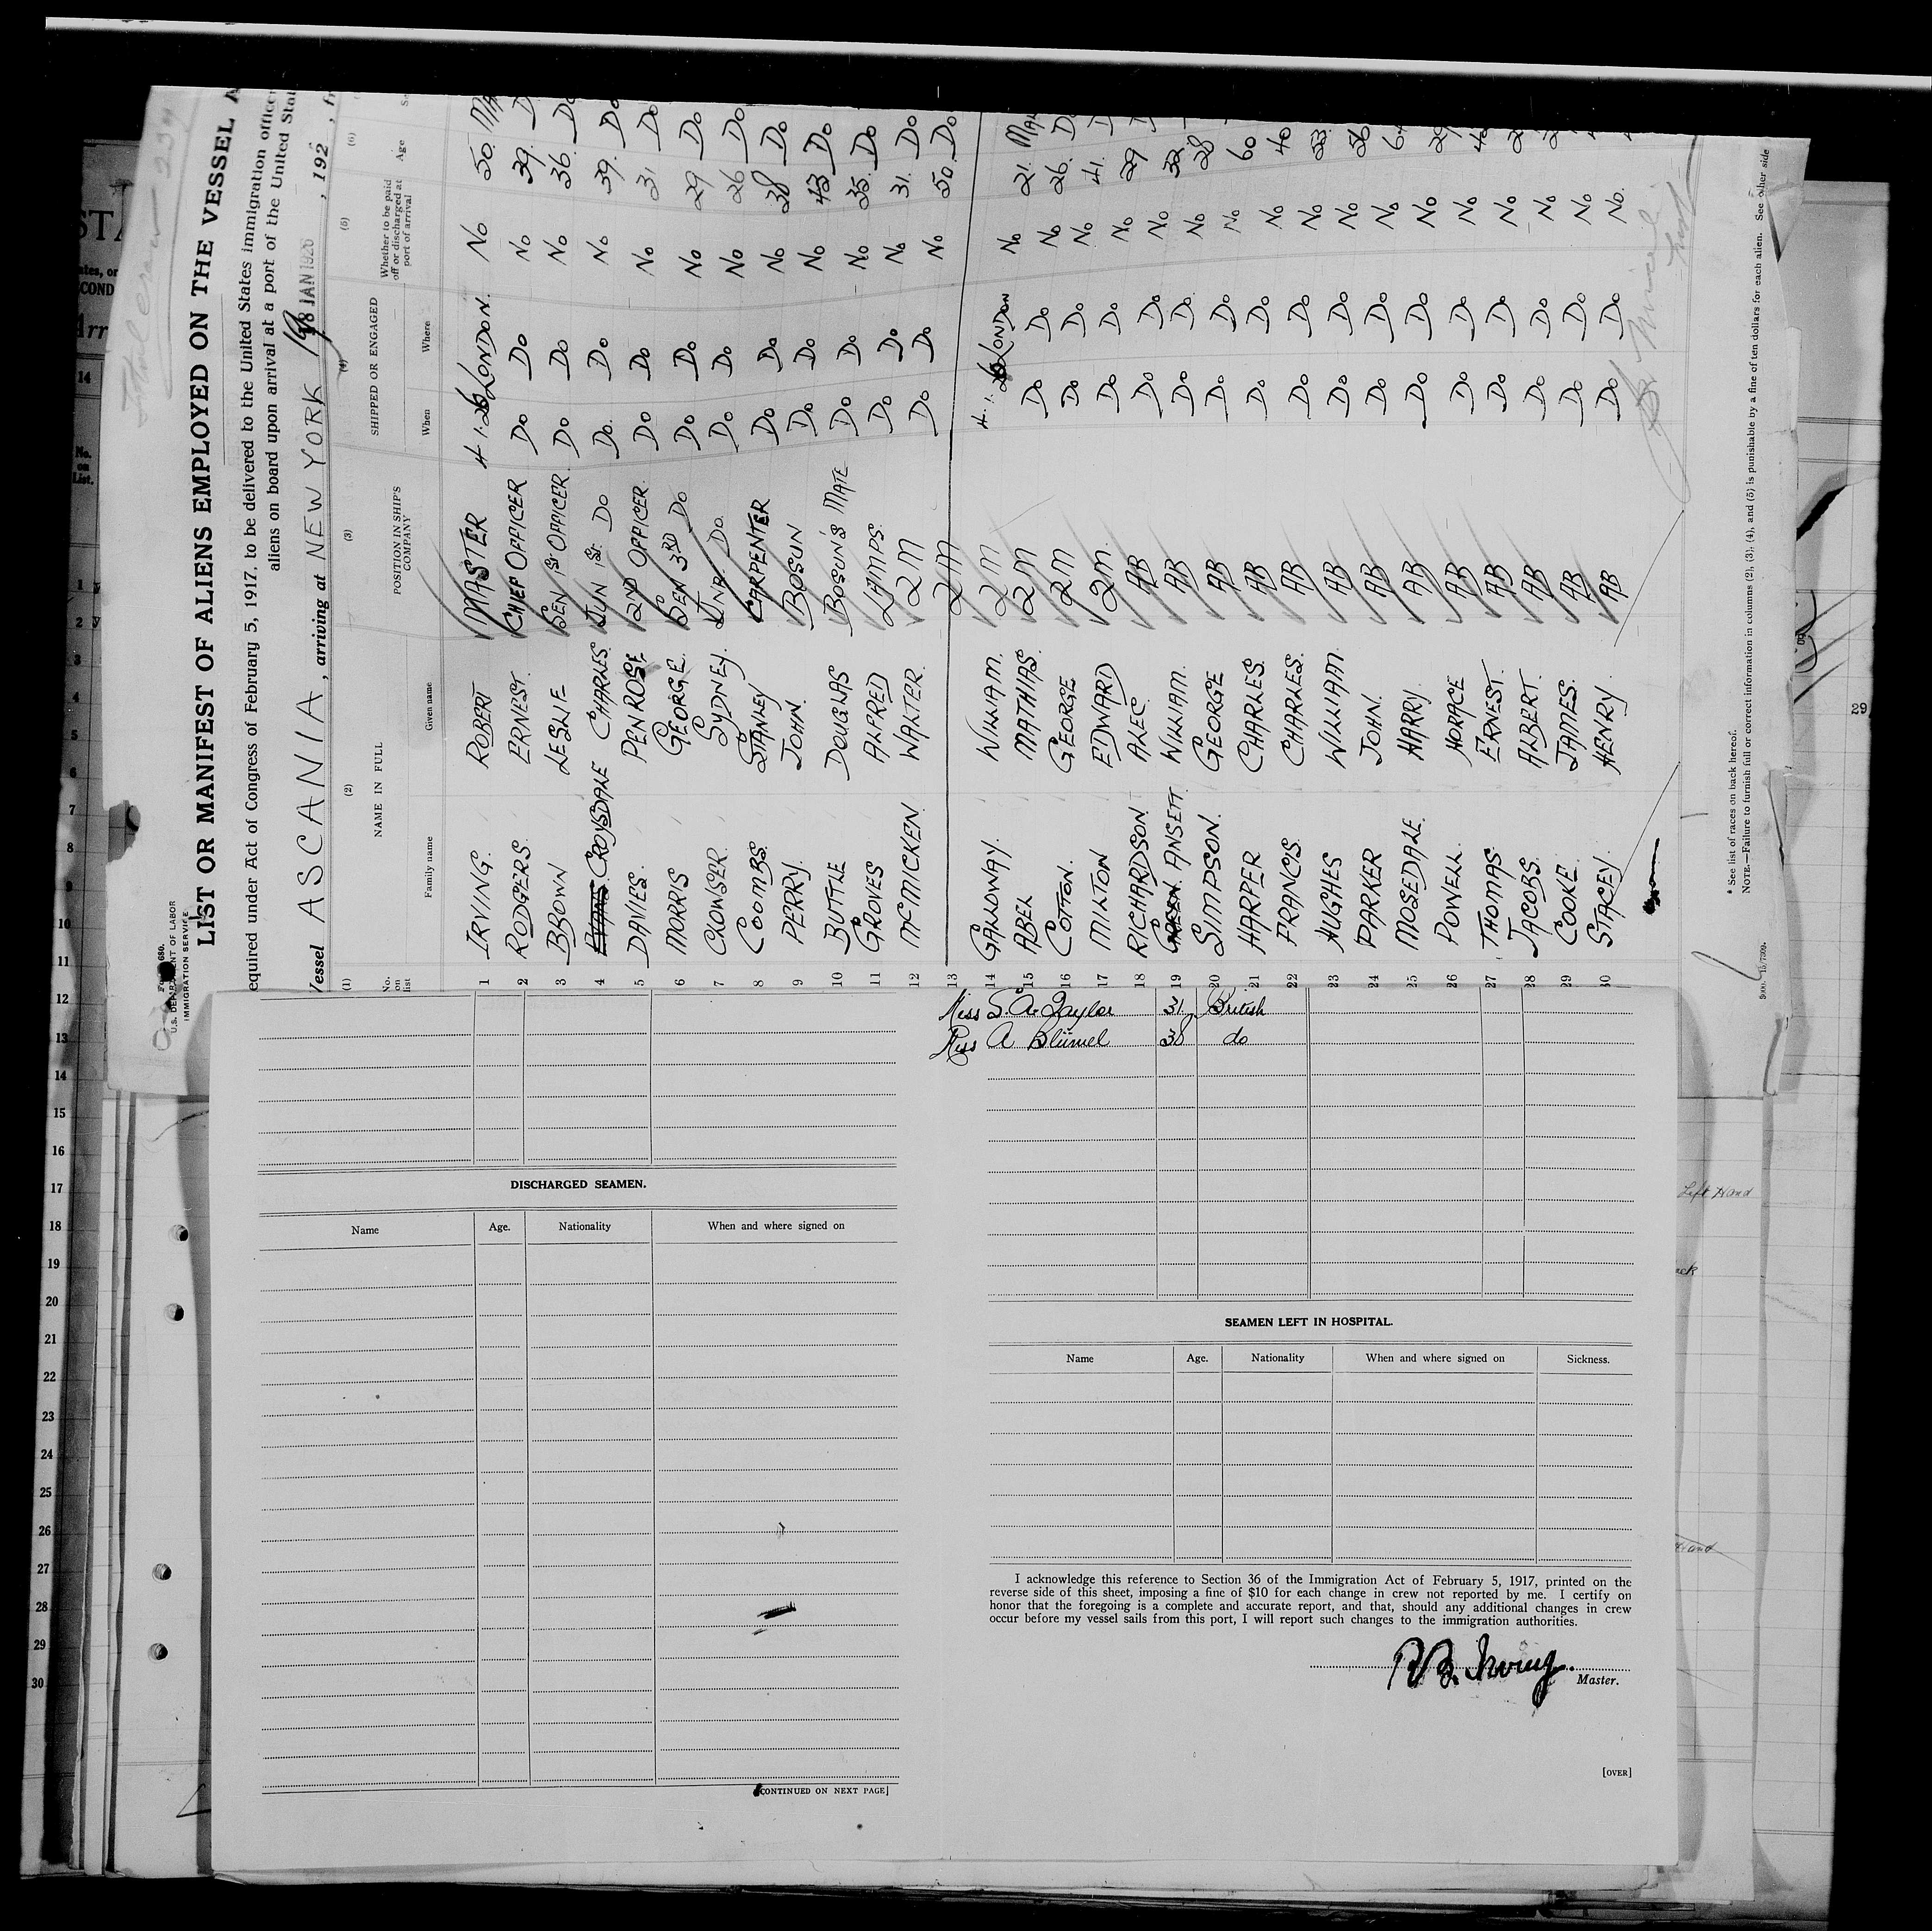 Form 680.
U.S. DEPARTMENT OF LABOR
IMMIGRATION SERVICE
LIST OR MANIFEST OF ALIENS EMPLOYED ON THE VESSEL
equired under Act of Congress of February 5, 1917, to be delivered to the United States immigration officer
aliens on board upon arrival at a port of the United Stat
Vessel ASCANIA, arriving at NEW YORK 19 18 JAN 1926, 192 , fr
(1) (2) (3) (4) (5) (6)
No. on list NAME IN FULL POSITION IN SHIP'S COMPANY SHIPPED OR ENGAGED Whether to be paid off or discharged at port of arrival Age
Family name Given name When Where
1 IRVING. ROBERT MASTER 4.1.26 LONDON. No 50. MA
2 RODGERS. ERNEST. CHIEF OFFICER Do Do No 39. D
3 BROWN LESLIE SEN 1ST OFFICER Do Do No 36. Do
4 EVANS CROYSDALE CHARLES. JUN 1ST Do Do. Do No 39. Do
5 DAVIES. PENROSE. 2ND OFFICER. Do Do No 31 Do
6 MORRIS GEORGE. SEN 3RD Do Do Do No 29 Do
7 CROWSER. SYDNEY. JUNR. Do. Do Do No 26 Do
8 COOMBS. STANLEY CARPENTER Do Do No 38 Do
9 PERRY. JOHN. BOSUN Do Do No 43 Do
10 BUTTLE DOUGLAS BOSUN'S MATE Do Do No 35. Do
11 GROVES ALFRED LAMPS. Do Do No 31. Do
12 McMICKEN. WALTER. 2M Do Do No 50. Do
13 2M
14 GALLOWAY. WILLIAM. 2M 4.1.26 LONDON No 21. MAL
15 ABEL MATHIAS. 2M Do Do No 26. Do
16 COTTON. GEORGE 2M Do Do No 41.
17 MILTON EDWARD 2M. Do Do No 29
18 RICHARDSON. ALEC. AB Do Do No 32
19 GREEN. ANSETT. WILLIAM. AB Do Do No 28
20 SIMPSON. GEORGE AB Do Do No 60
21 HARPER CHARLES. AB Do Do No 40
22 FRANCIS. CHARLES. AB Do Do No
23 HUGHES WILLIAM AB Do Do No
24 PARKER JOHN. AB Do Do No
25 MOSEDALE. HARRY. AB Do Do No
26 POWELL. HORACE AB Do Do No
27 THOMAS. ERNEST. AB Do Do No
28 JACOBS. ALBERT. AB Do Do No
29 COOKE. JAMES. AB Do Do No
30 STACEY. HENRY. AB Do Do No.
* See list of races on back hereof.
NOTE.—Failure to furnish full or correct information in columns (2), (3), (4), and (5) is punishable by a fine of ten dollars for each alien. See other side
Miss S. A. Taylor 31 British
Miss A Blümel 38 do
DISCHARGED SEAMEN.
Name Age. Nationality When and where signed on
[CONTINUED ON NEXT PAGE]
SEAMEN LEFT IN HOSPITAL.
Name Age. Nationality When and where signed on Sickness.
I acknowledge this reference to Section 36 of the Immigration Act of February 5, 1917, printed on the
reverse side of this sheet, imposing a fine of $10 for each change in crew not reported by me. I certify on
honor that the foregoing is a complete and accurate report, and that, should any additional changes in crew
occur before my vessel sails from this port, I will report such changes to the immigration authorities.
R.B. Irving.
Master.
[OVER]
No. on List.
14
1
2
3
4
5
6
7
8
9
10
11
12
13
14
15
16
17
18
19
20
21
22
23
24
25
26
27
28
29
30
29
Left Hand